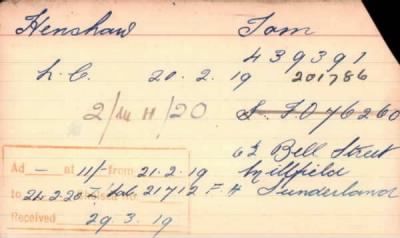 Henshaw Tom
439391
L.C. 20.2.19 201786
2/M H/20 S. F076260
62 Bell Street
Millfield
Sunderland
Ad — at 11/- from 21.2.19
to 24.2.20 21712 F. H
Received 29.3.19